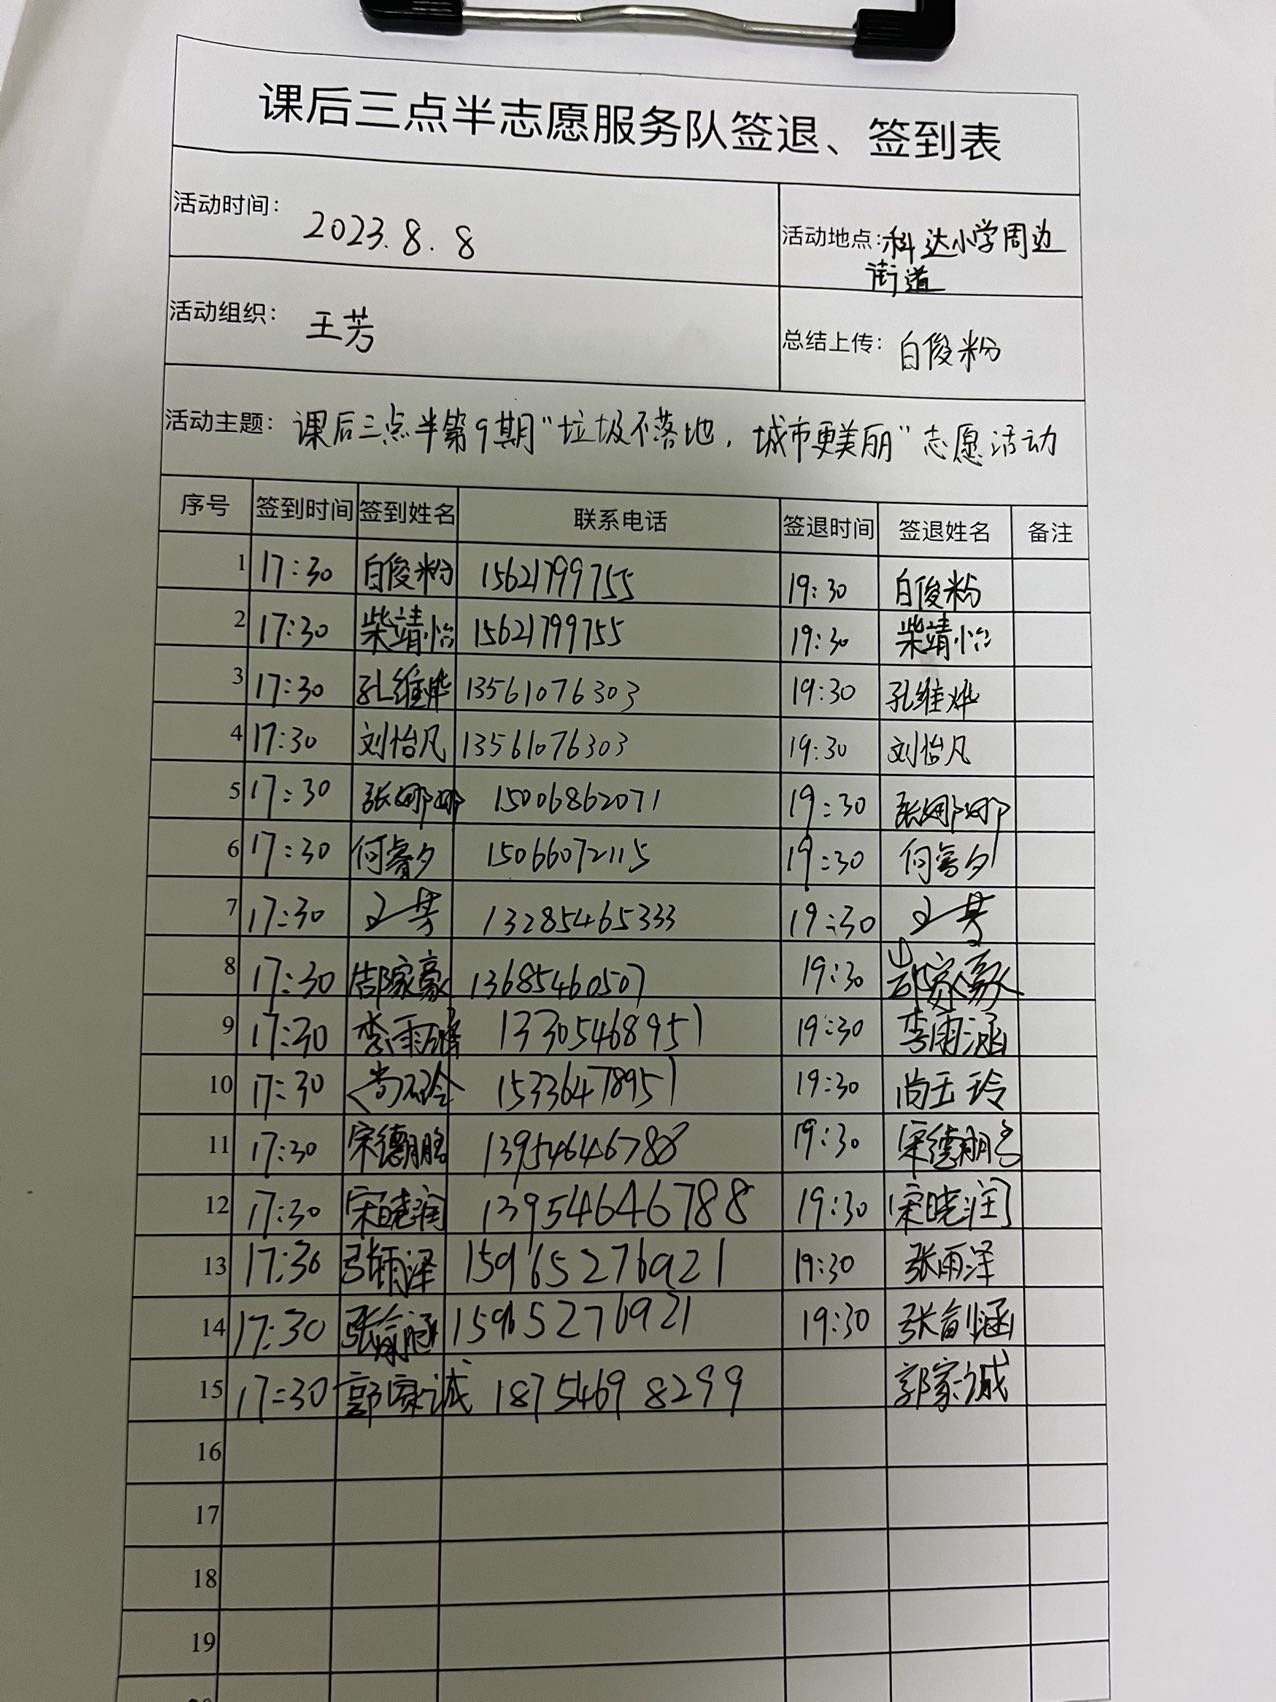 课后三点半志愿服务队签退、签到表
活动时间： 2023.8.8 活动地点：科达小学周边
街道
活动组织： 王芳 总结上传：白俊粉
活动主题：课后三点半第9期“垃圾不落地，城市更美丽”志愿活动
序号 签到时间 签到姓名 联系电话 签退时间 签退姓名 备注
1 17:30 白俊粉 15621799755 19:30 白俊粉
2 17:30 柴靖怡 15621799755 19:30 柴靖怡
3 17:30 孔维烨 13561076303 19:30 孔维烨
4 17:30 刘怡凡 13561076303 19:30 刘怡凡
5 17:30 张娜娜 15006862071 19:30 张娜娜
6 17:30 何睿夕 15066072115 19:30 何睿夕
7 17:30 王芳 13285465333 19:30 王芳
8 17:30 家豪 13685460507 19:30 家豪
9 17:30 李雨涵 13305468951 19:30 李雨涵
10 17:30 尚玉玲 15336478951 19:30 尚玉玲
11 17:30 宋德鹏 13954646788 19:30 宋德鹏
12 17:30 宋晓润 13954646788 19:30 宋晓润
13 17:30 张雨泽 15965276921 19:30 张雨泽
14 17:30 张涵 15965276921 19:30 张涵
15 17:30 郭家诚 18754698299 郭家诚
16
17
18
19